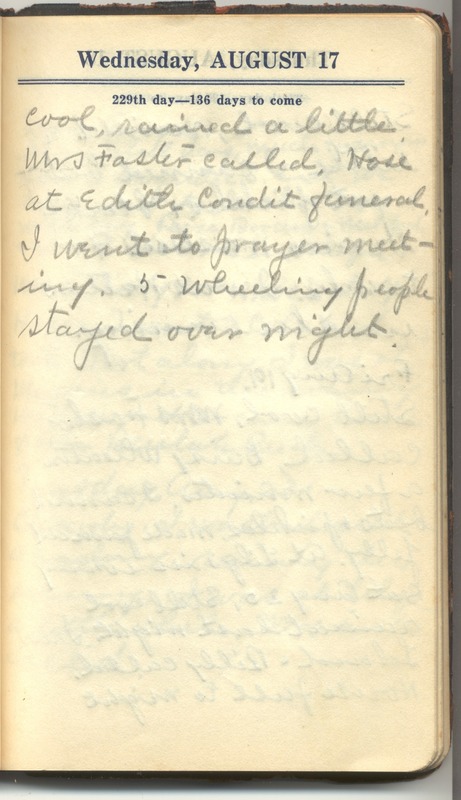 Wednesday, AUGUST 17
229th day—136 days to come
Cool, rained a little.
Mrs Foster called, Hose
at Edith Condit funeral.
I went to prayer meet-
ing. 5 Wheeling people
stayed over night.